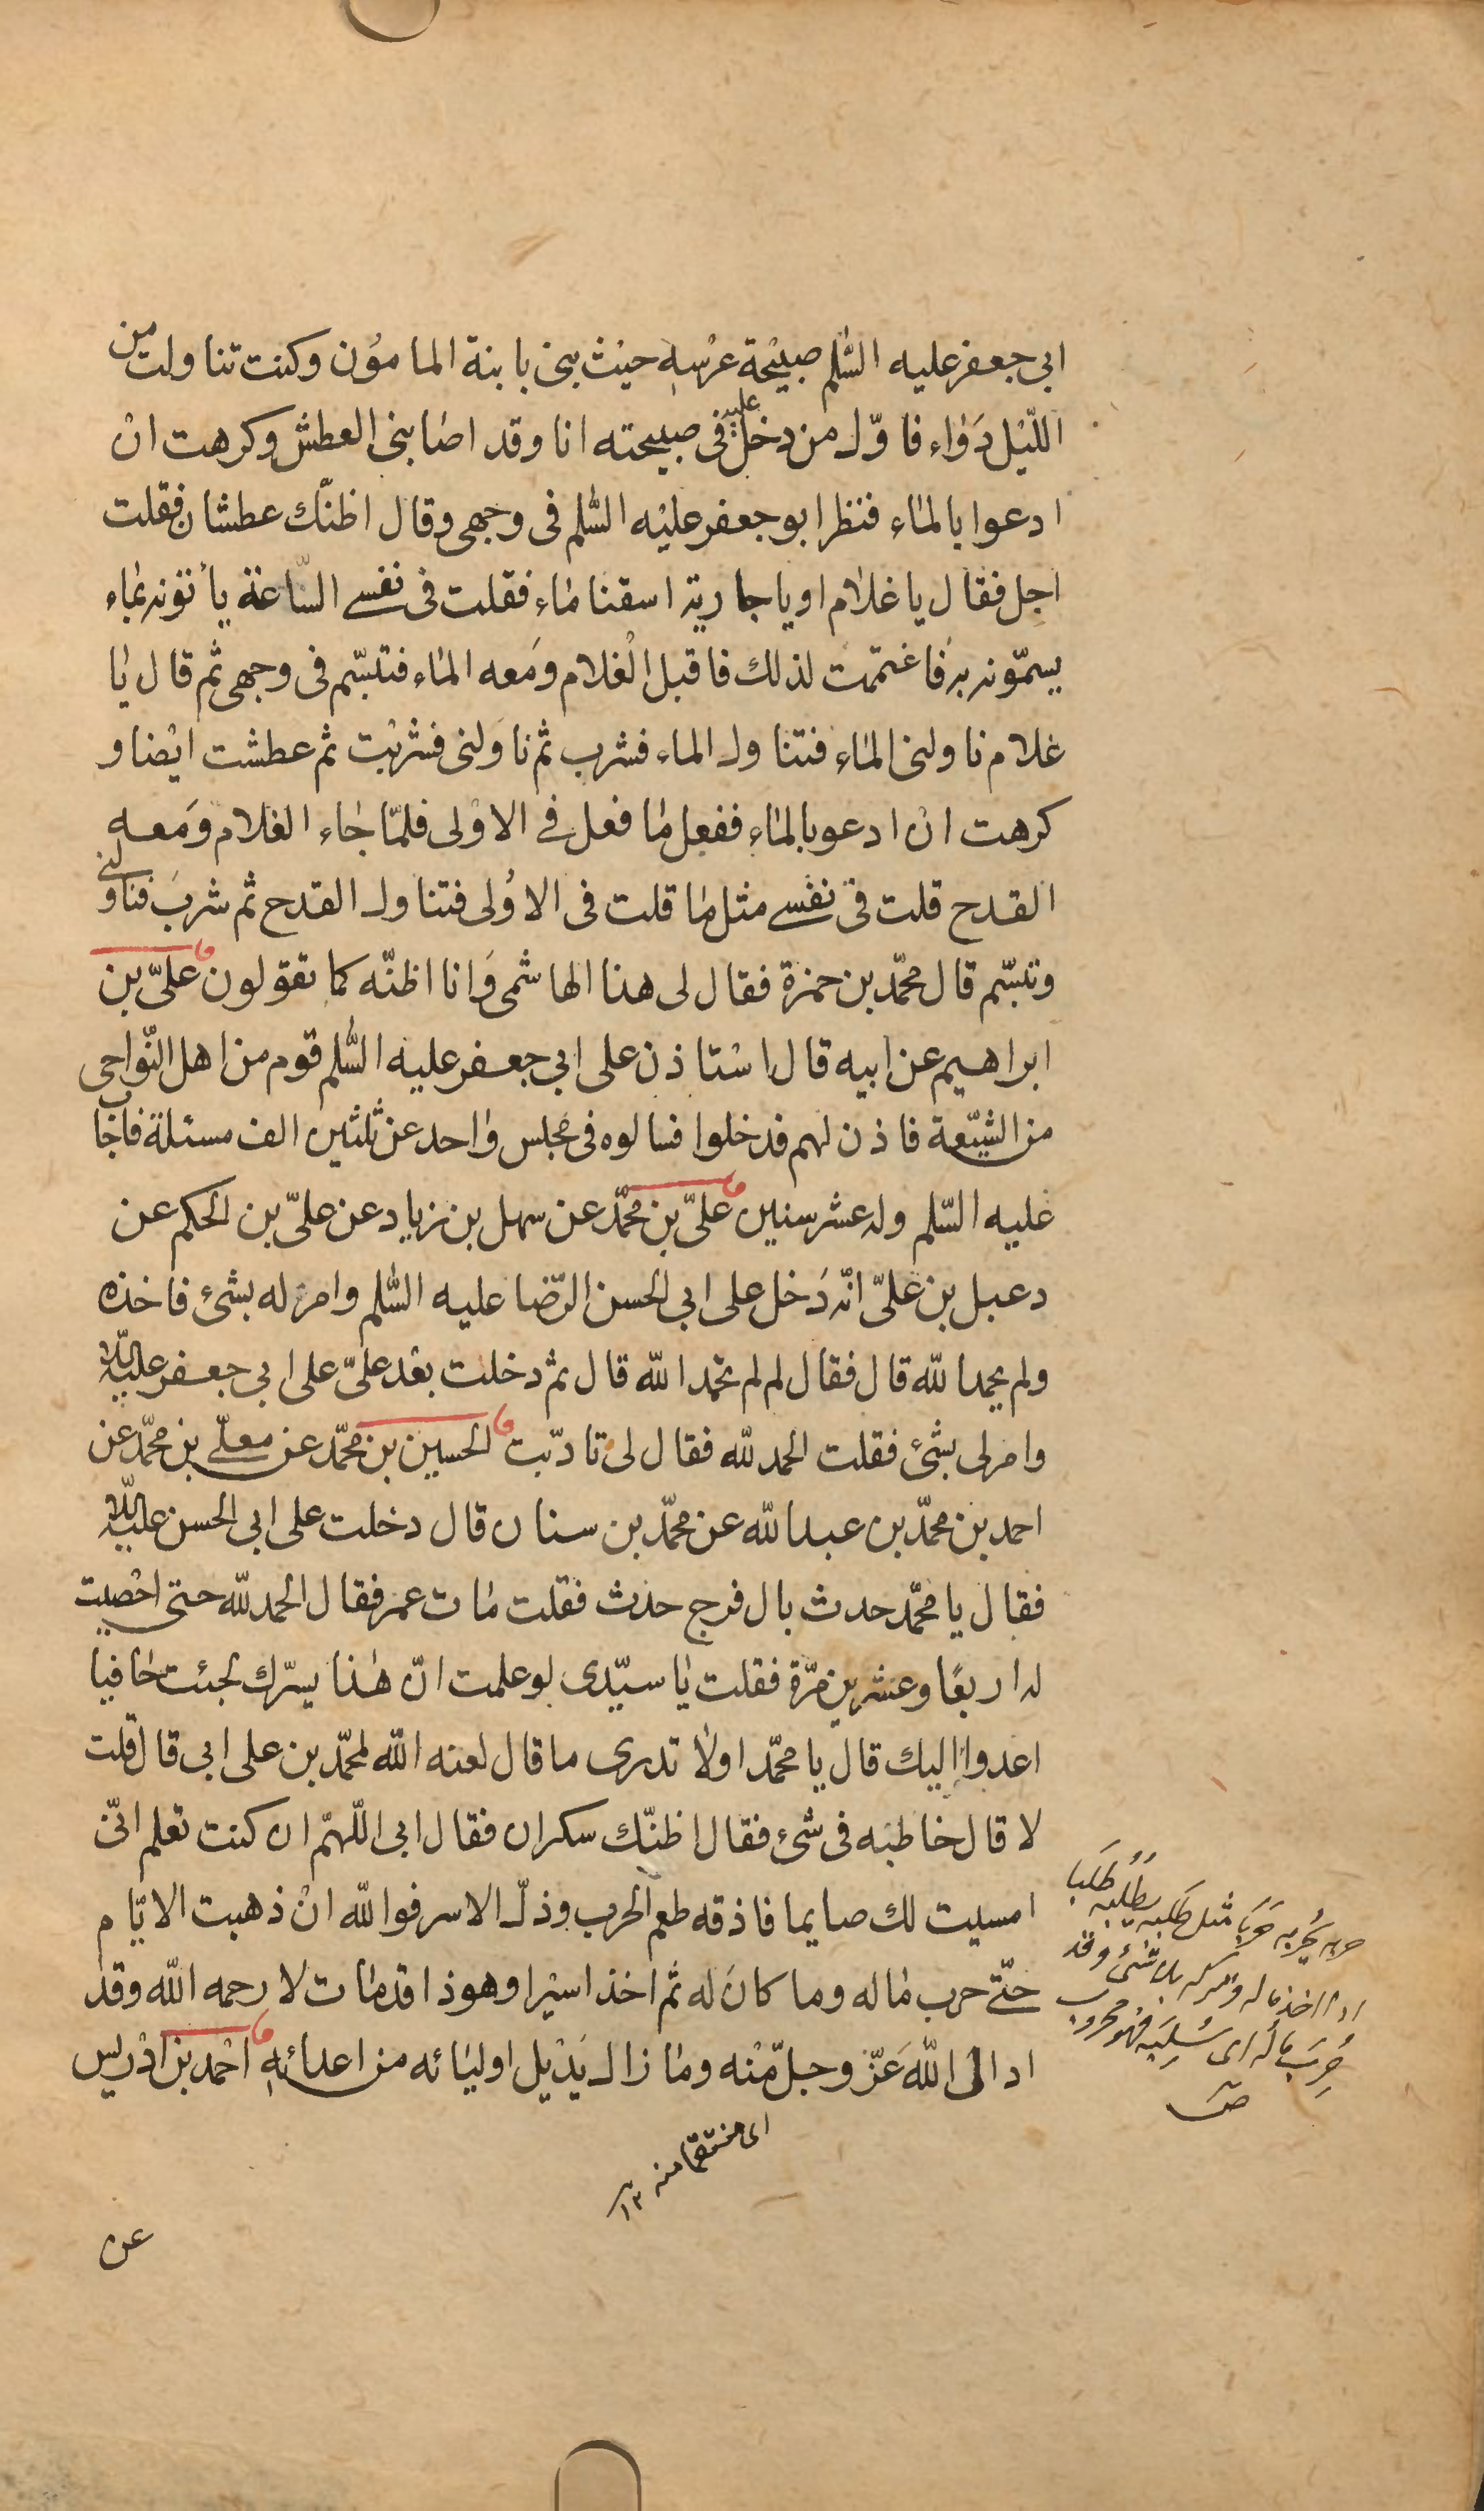 ابي جعفر عليه السّلم صبيْحة عرْسه حيْث بنى بابنة المامؤن وكنت تناولت من
اللّيْل دَوٰاء فاوّل من دخل عليه فى صبيحته انا وقد اصٰابنى العطش وكرهت انْ
ادعوا بالمٰاء فنظر ابو جعفر عليْه السّلم فى وجهى وقال اظنّك عطشان فقلت
اجل فقال يا غلٰام او يا جارية اسقنا مٰاء فقلت فى نفسے السّاعة يأتونه بمٰاء
يسمّونه به فاغتممت لذلك فاقبل الْغلام وَمَعه المٰاء فتبسّم فى وجهى ثم قال يٰا
غلام ناولنى المٰاء فتناول الماء فشرب ثم ناوَلنى فشربْت ثم عطشت ايْضا و
كرهت انْ ادعو بالمٰاء ففعل مٰا فعل فے الاوْلى فلمّا جٰاء الغلام وَمَعه
القدح قلت فى نفسے مثل مٰا قلت فى الاوُلى فتناول القدح ثم شربَ فناولنى
وتبسّم قال محمّد بن حمزة فقال لى هذا الهاشمى وَانا اظنّه كما تقولون علىّ بن
ابراهيم عن ابيه قال اسْتاذن على ابي جعفر عليه السّلم قوم من اهل النّواحى
من الشيّعة فاذن لهم فدخلوا فسالوه فى مجلس وٰاحد عن ثلثين الف مسئلة فاجٰاب
عليه السّلم وله عشر سنين علىّ بن محمّد عن سهل بن زياد عن علىّ بن الحكم عن
دعبل بن علىّ انّه دَخل على ابي الحسن الرّضا عليه السّلم وامر له بشئ فاخذه
ولم يحمد الله قال فقال لم لم تحمد الله قال ثم دخلت بعْد علىّ على ابي جعفر عليه السّلام
وامر لى بشئ فقلت الحمد لله فقال لى تادّبت الحسين بن محمّد عن معلّے بن محمّد عن
احمد بن محمّد بن عبد الله عن محمّد بن سنان قال دخلت على ابى الحسن عليه السّلام
فقال يا محمّد حدث بال فرج حدث فقلت مٰات عمر فقال الحمد لله حتى احْصيت
له اربعًا وعشرين مرّة فقلت يٰا سيّدى لو علمت انّ هٰذا يسرّك لجئت حٰافيا
اعدوا اليك قال يا محمّد اولٰا تدرى ما قال لعنه الله لمحمّد بن على ابى قال قلت
لا قال خاطبَه فى شئ فقال اظنّك سكران فقال ابى اللّهمّ ان كنت تعلم انّى
امسيت لك صايما فاذقه طعم الحرب وذلّ الاسر فوا لله انْ ذهبت الايّام
حتّے حرب مٰاله وما كان له ثم اخذ اسيْرا وهو ذا قد مٰات لا رحمه الله وقد
ادال الله عَزّ وجلّ منْه ومٰا زال يَدْيل اوليٰائه من اعدائه احْمد بن ادْريس
حربه يَحْربه حَرَبا مثل طَلَبه يَطْلُبه طَلَبا
اذا اخذ ماله وتركه بلا شئ وقد
حُرِبَ ماله اى سُلِبَه فهو محروب
صـ
اى منتقما منه ١٢
عن